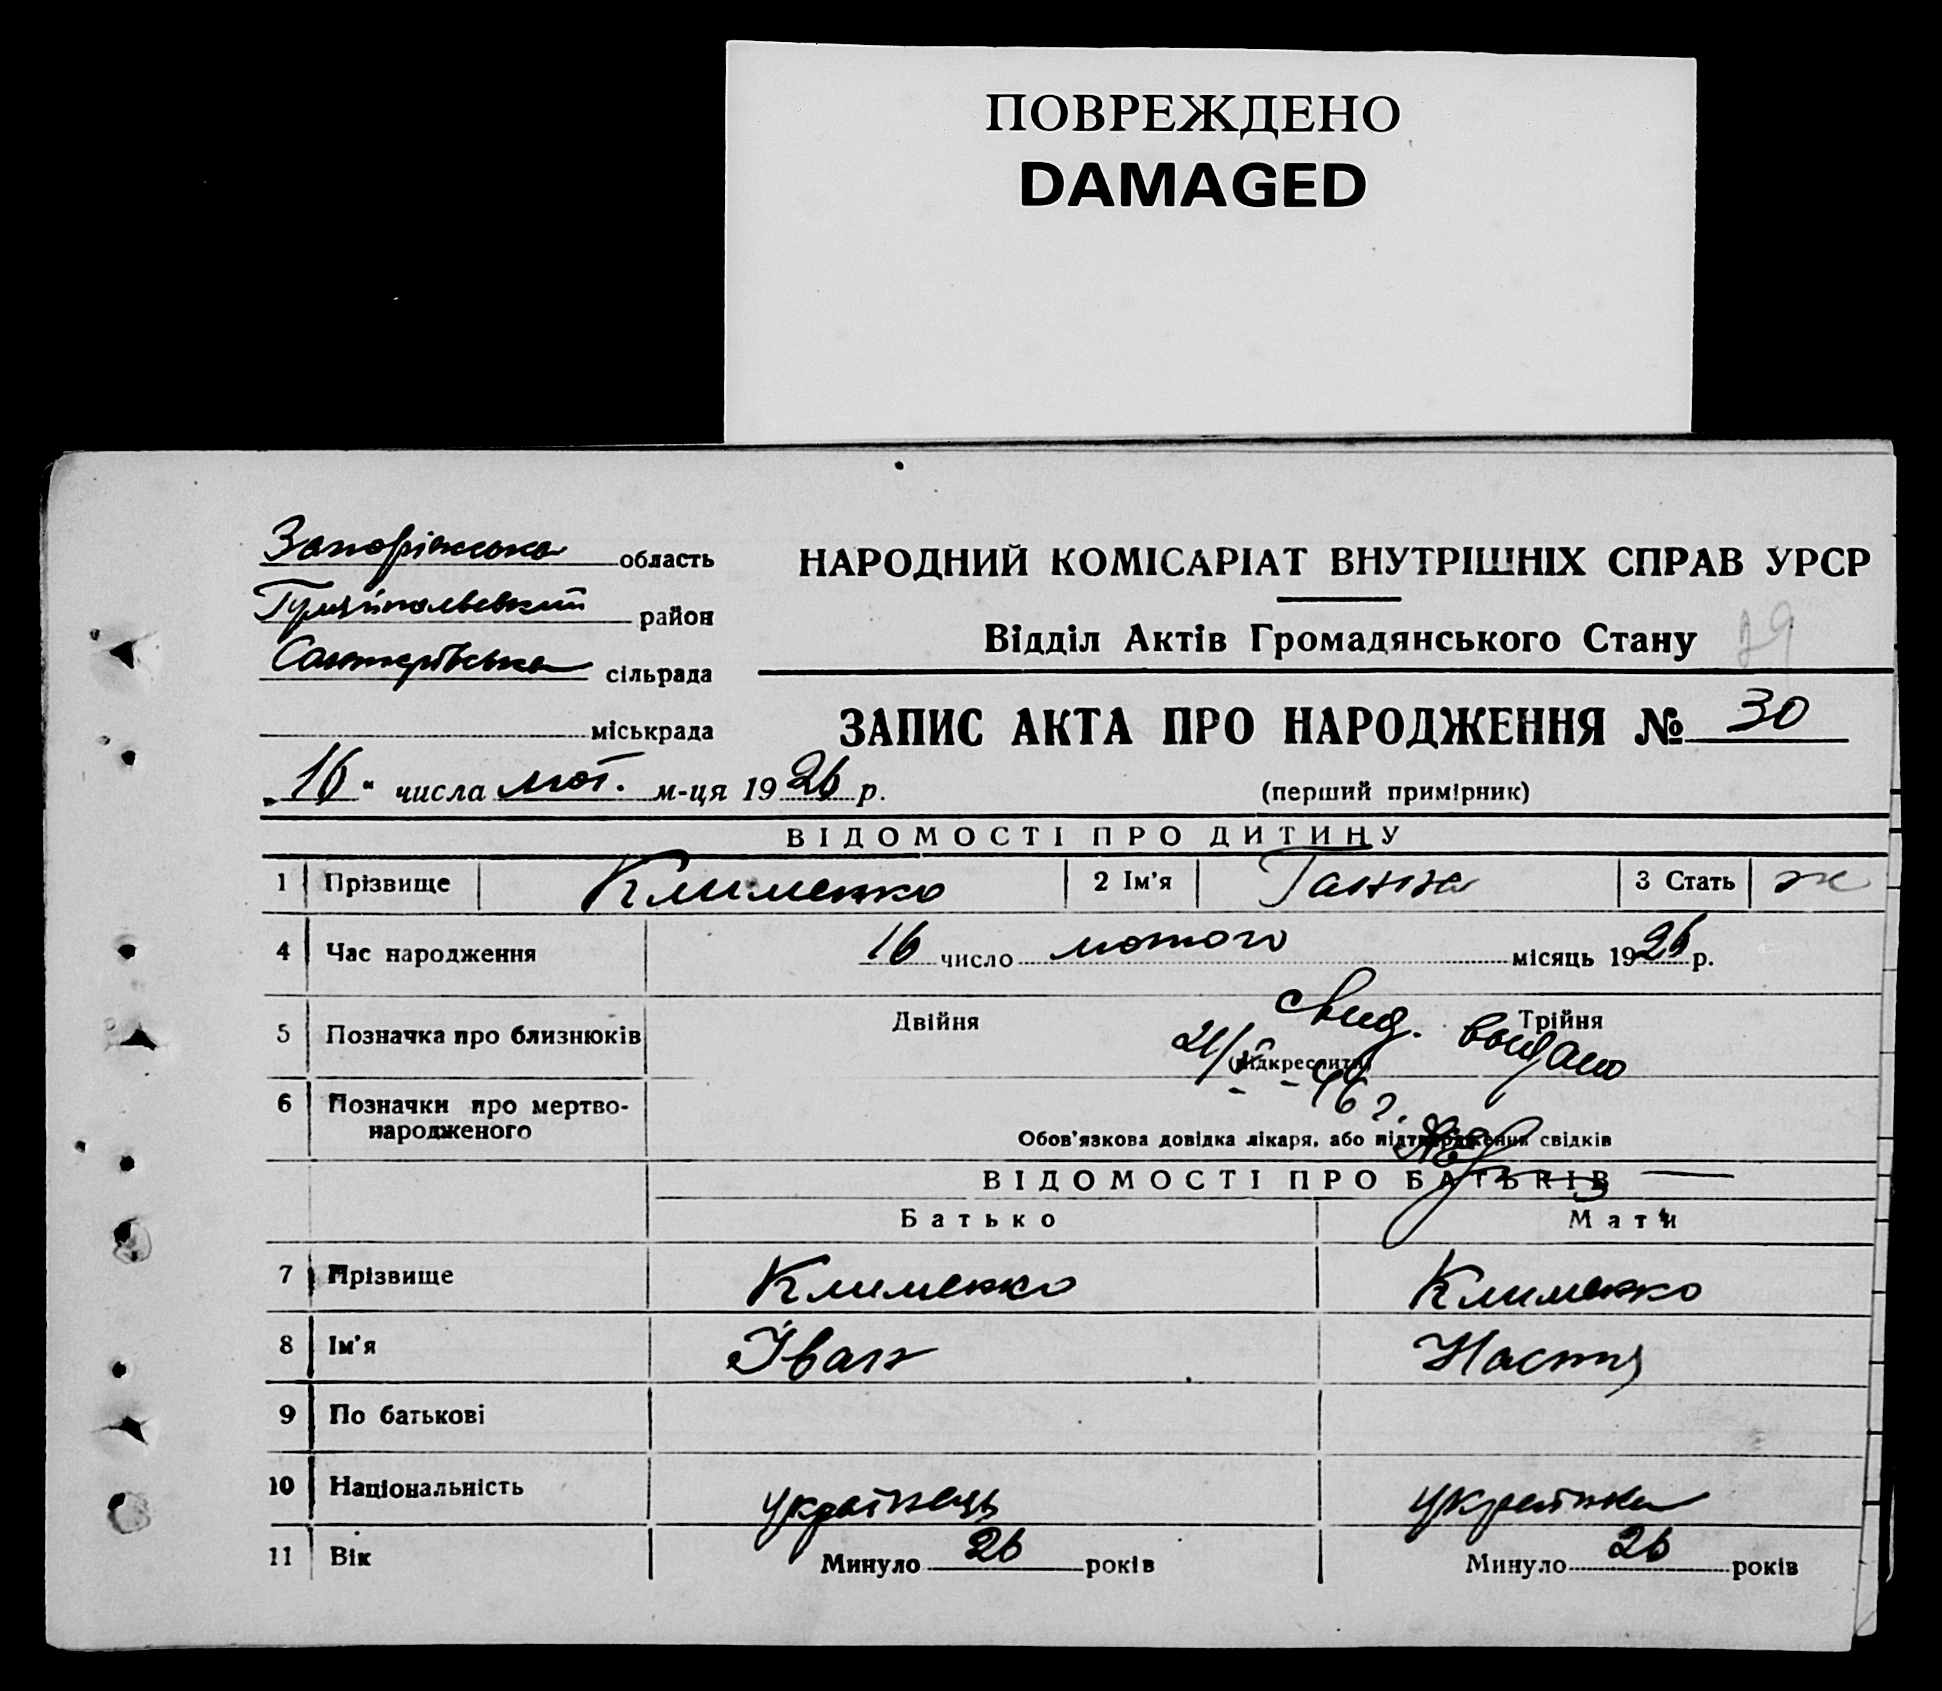 ПОВРЕЖДЕНО
DAMAGED
Запоріжська область
Гуляйпольвський район
сільрада
міськрада
„16“ числа лют. м-ця 1926 р.
НАРОДНИЙ КОМІСАРІАТ ВНУТРІШНІХ СПРАВ УРСР
Відділ Актів Громадянського Стану
29
ЗАПИС АКТА ПРО НАРОДЖЕННЯ № 30
(перший примірник)
ВІДОМОСТІ ПРО ДИТИНУ
1 Прізвище Клименко 2 Ім'я Ганна 3 Стать ж
4 Час народження 16 число лютого місяць 1926 р.
5 Позначка про близнюків Двійня Трійня
(підкреслити)
свид. выдано
21/V - 46 г.
6 Позначки про мертво-
народженого
Обов'язкова довідка лікаря, або підтвердження свідків
ВІДОМОСТІ ПРО БАТЬКІВ
Батько Мати
7 Прізвище Клименко Клименко
8 Ім'я Іван Настя
9 По батькові
10 Національність українець українка
11 Вік Минуло 26 років Минуло 26 років